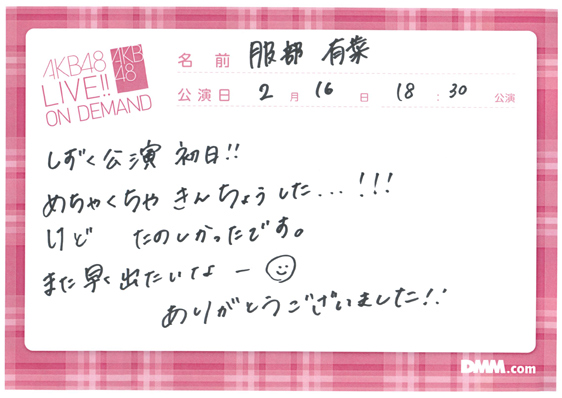 AKB48
LIVE!!
ON DEMAND
AKB
48
名前 服部 有菜
公演日 2月16日 18:30公演
しずく公演 初日!!
めちゃくちゃ きんちょうした...!!!
けど たのしかったです。
また早く出たいなー
ありがとうございました!!
DMM.com